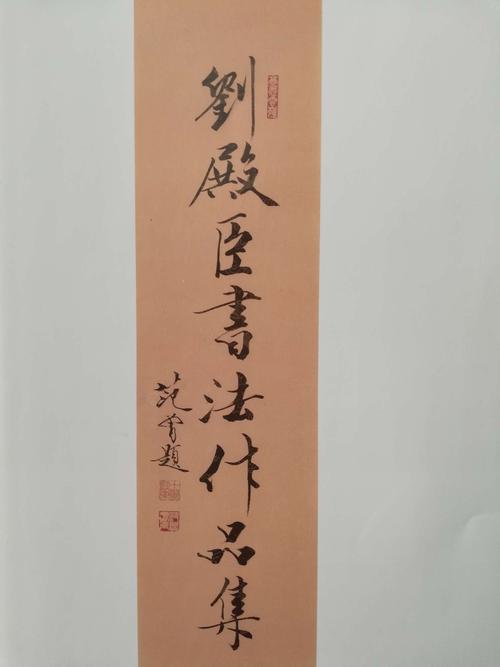 劉殿臣書法作品集
范曾題